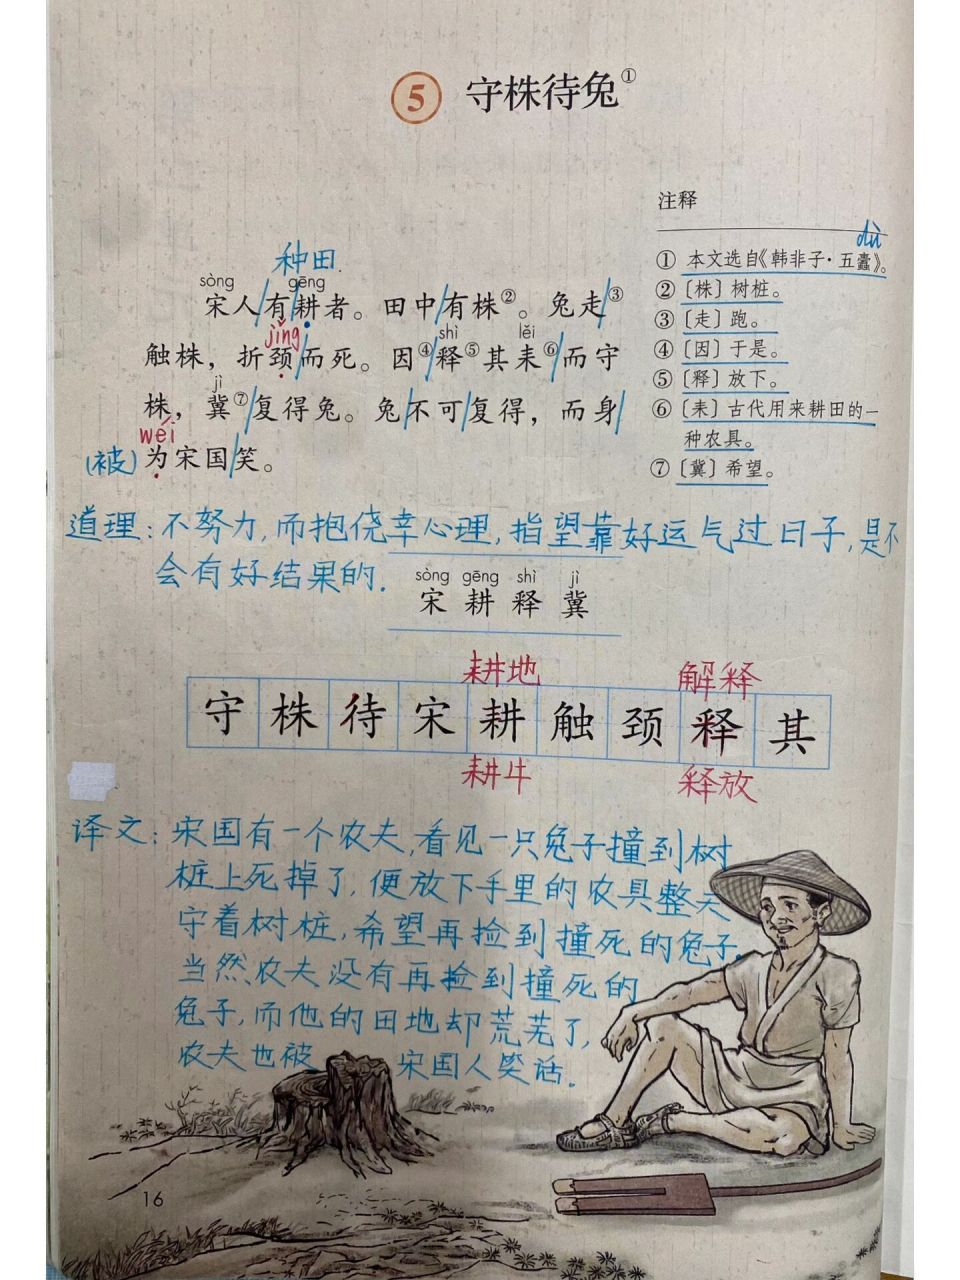 5 守株待兔①
注释
dù
① 本文选自《韩非子·五蠹》。
② 〔株〕树桩。
③ 〔走〕跑。
④ 〔因〕于是。
⑤ 〔释〕放下。
⑥ 〔耒〕古代用来耕田的一
种农具。
⑦ 〔冀〕希望。
种田.
sòng gēng
宋人/有/耕者。田中/有株②。兔走/③
jǐng shì lěi
触株，折颈/而死。因④/释⑤其耒⑥/而守
jì
株，冀⑦/复得兔。兔/不可/复得，而身/
wéi
(被)为宋国/笑。
道理：不努力，而抱侥幸心理，指望靠好运气过日子，是不
会有好结果的.
sòng gēng shì jì
宋 耕 释 冀
耕地 解释
守 株 待 宋 耕 触 颈 释 其
耕牛 释放
译文：宋国有一个农夫，看见一只兔子撞到树
桩上死掉了，便放下手里的农具整天
守着树桩，希望再捡到撞死的兔子.
当然，农夫没有再捡到撞死的
兔子，而他的田地却荒芜了，
农夫也被 宋国人笑话.
16